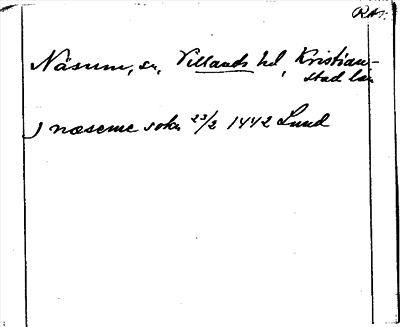 RAS.
Näsum, sn, Villands hd, Kristian-
stad län
J næseme sokn 23/2 1442 Lund